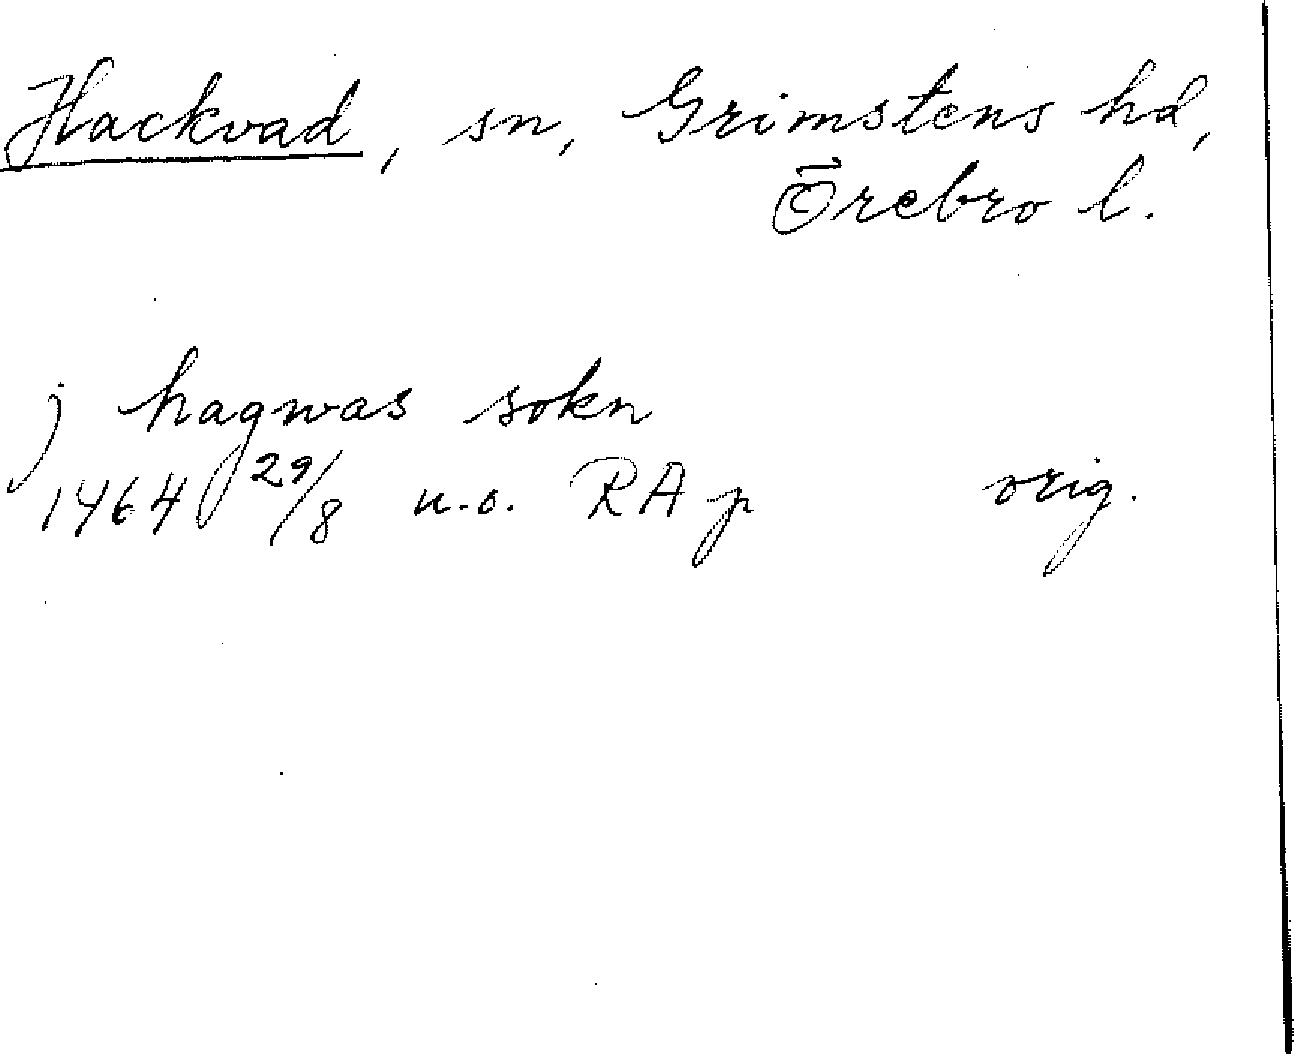 Hackvad, sn, Grimstens hd,
Örebro l.
j hagwas sokn
1464 29/8 u.o. RAp orig.